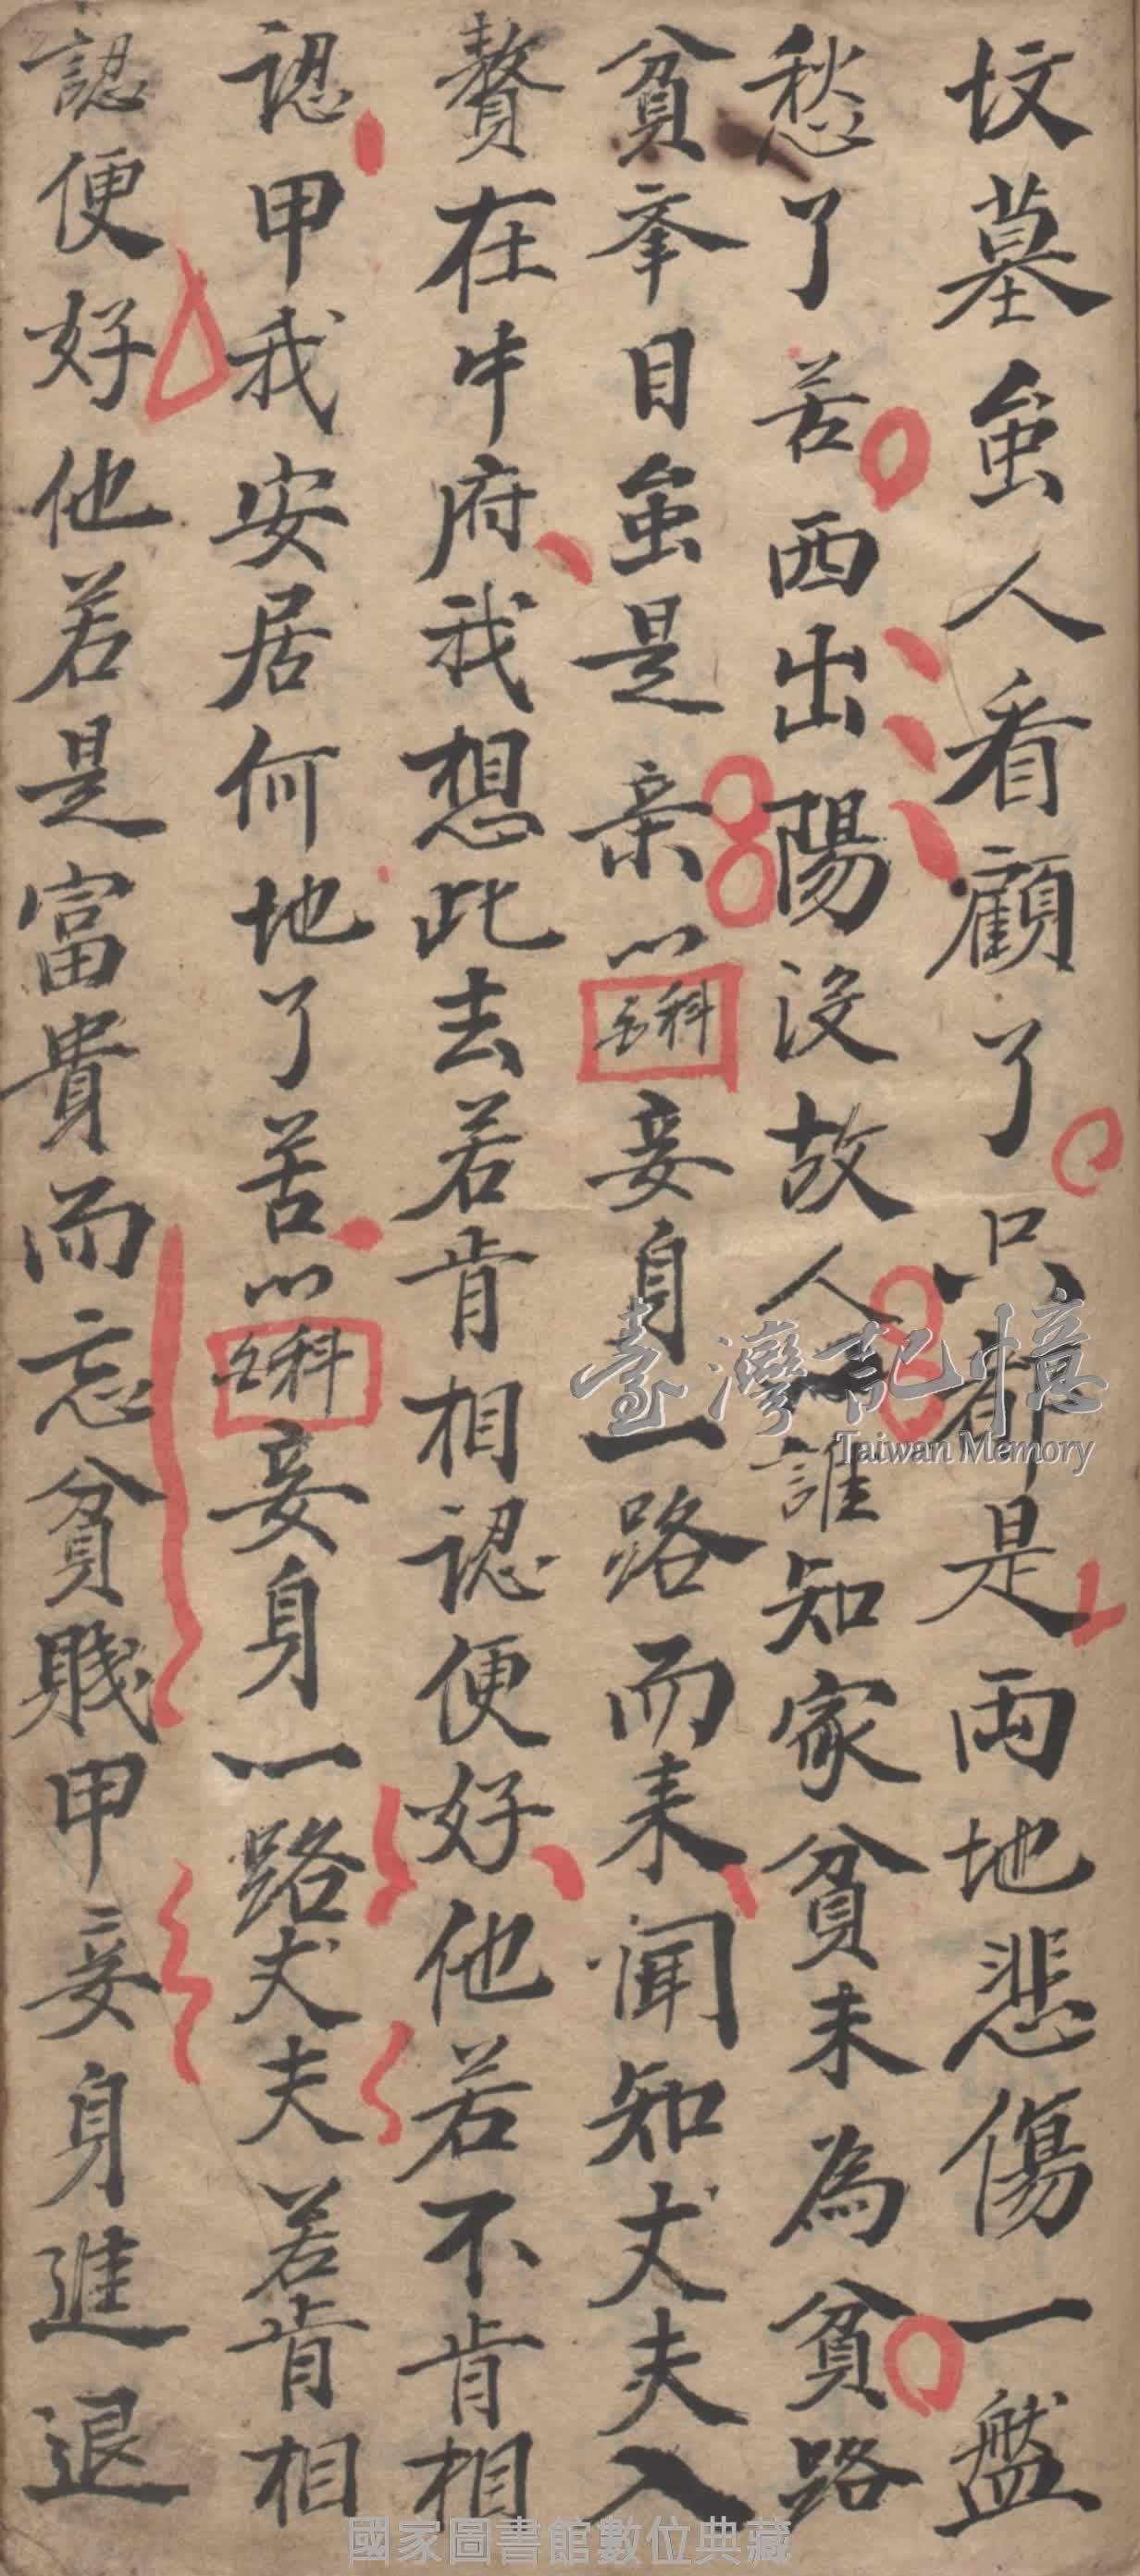 坟墓虽人看顧了只都是両地悲傷一盤
愁了苦西出陽没故人人誰知家貧未為貧路
貧峯目虽是亲〻科妾身一路而来闻知丈夫入
贅在牛府我想此去若肯相認便好他若不肯相
認甲我安居何地了苦〻科妾身一路丈夫若肯相
認便好他若是富貴而忘貧賤甲妾身進退
臺灣記憶
Taiwan Memory
國家圖書館數位典藏